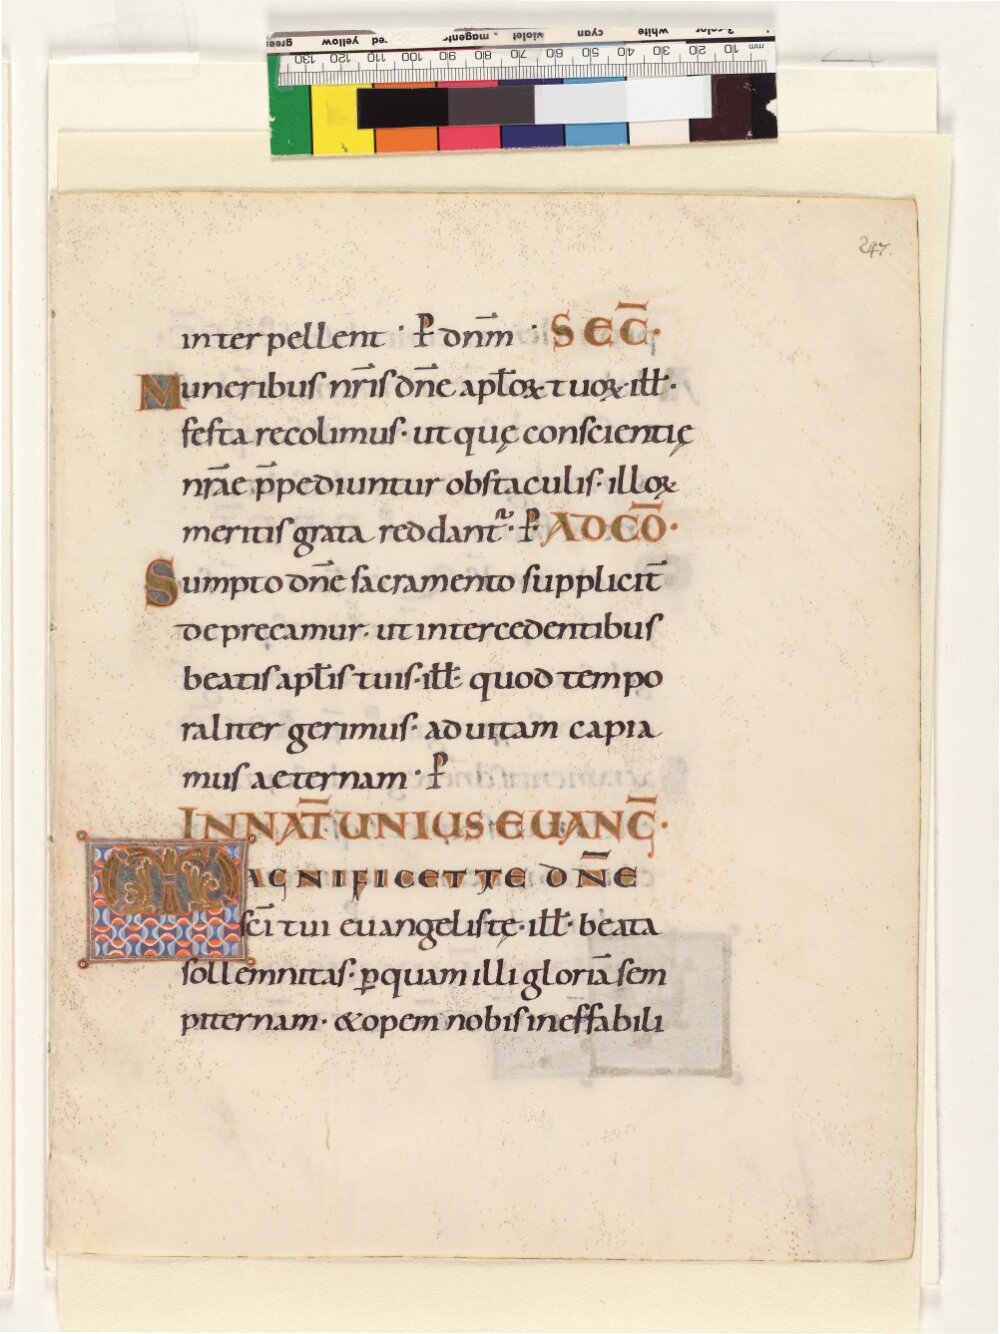 247.
interpellent · P̄ dnm̄ · SEC̄·
Muneribus nr̄is dn̄e apl̄oꝝ tuoꝝ· ill̄·
festa recolimus· ut quę conscientię
nr̄ae p̄pediuntur obstaculis· illoꝝ
meritis grata reddant᷑· P̄· AD CŌ·
Sumpto dn̄e sacramento supplicit̄
deprecamur· ut intercedentibus
beatis apl̄is tuis· ill̄· quod tempo
raliter gerimus· ad uitam capia
mus aeternam · P̄
IN NAT̄ UNIUS EUANG̅·
MAGNIFICET TE DN̄E
sc̄i tui euangelistę· ill̄· beata
sollemnitas· ꝑ quam illi gloriā sem
piternam· & opem nobis ineffabili